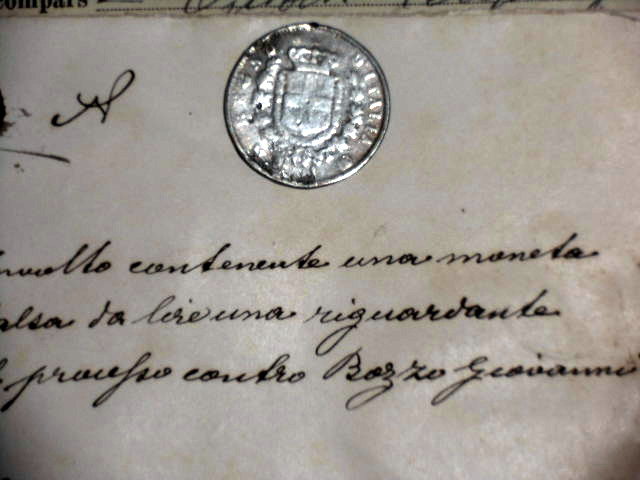 compars
A
nvolto contenente una moneta
alsa da lire una riguardante
l processo contro Bozzo Giovanni